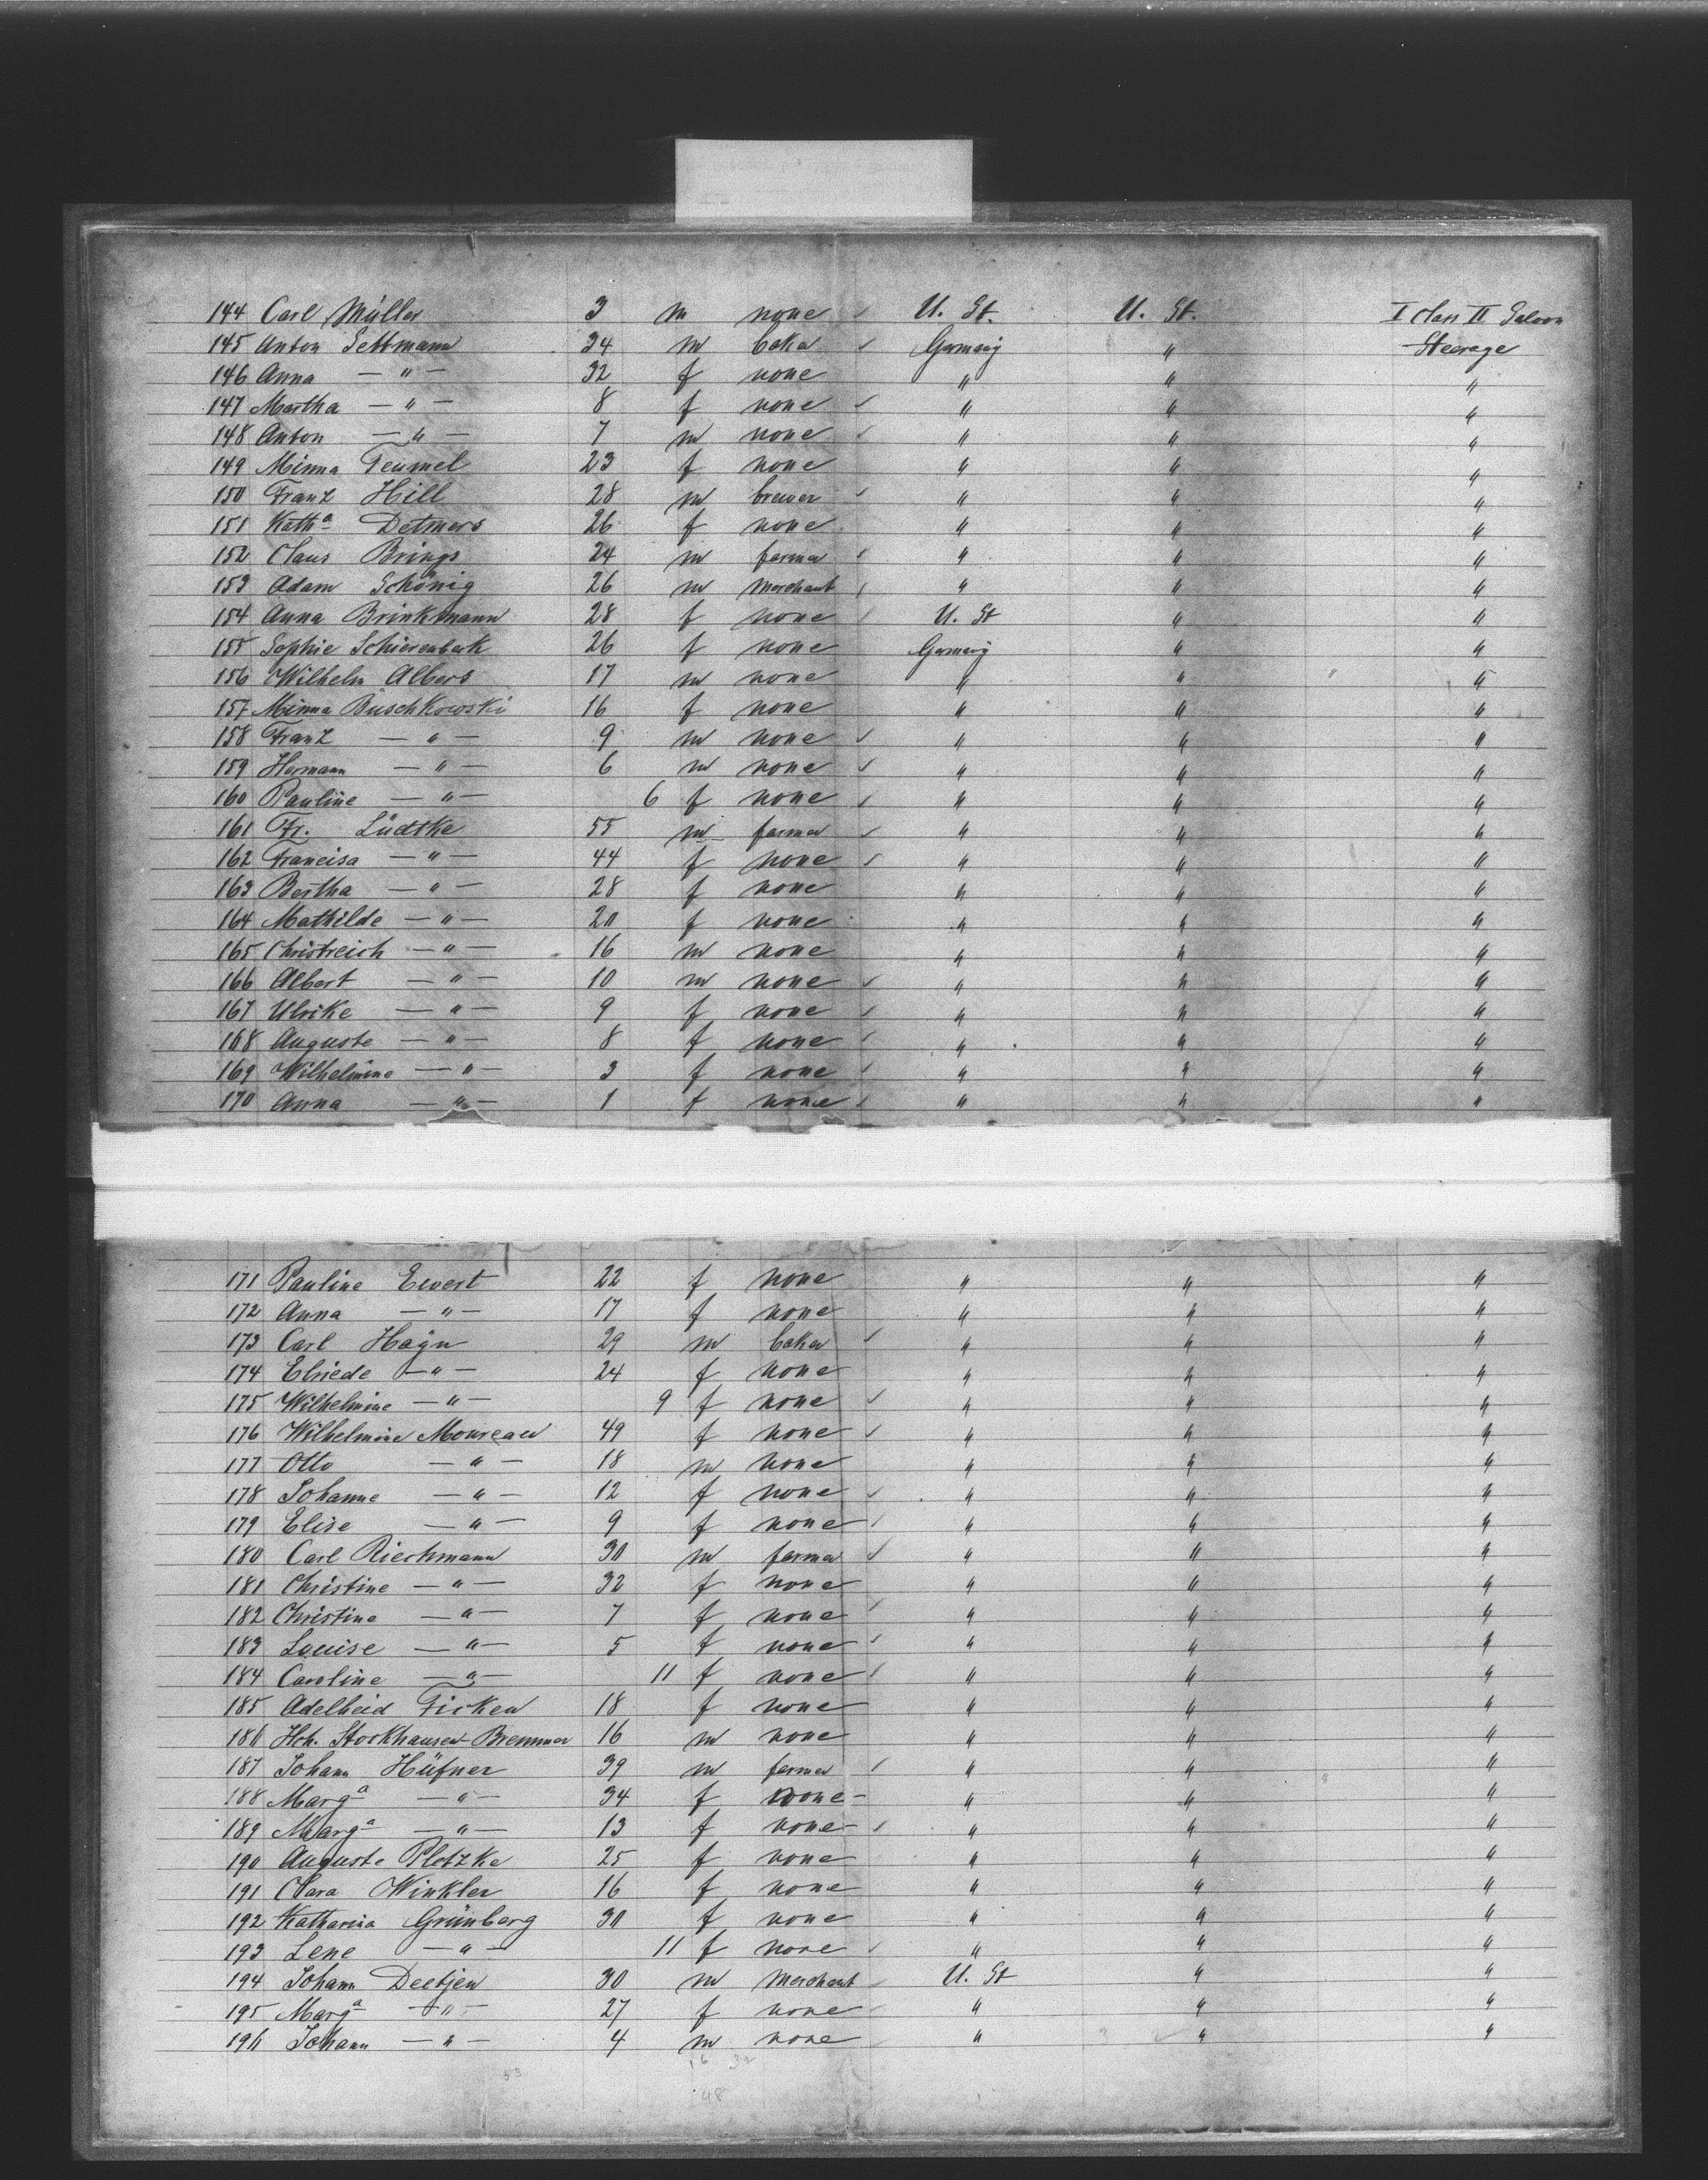 144 Carl Müller 3 m none U. St. U. St. I class II Saloon
145 Anton Settmann 34 m baker Germany " Steerage
146 Anna — " — 32 f none " " "
147 Martha — " — 8 f none " " "
148 Anton — " — 7 m none " " "
149 Minna Teumel 23 f none " " "
150 Franz Hill 28 m brewer " " "
151 Kath<sup>a</sup> Detmers 26 f none " " "
152 Claus Brings 24 m farmer " " "
153 Adam Schönig 26 m merchant " " "
154 Anna Brinkmann 28 f none U. St " "
155 Sophie Schierenbeck 26 f none Germany " "
156 Wilhelm Albers 17 m none " " "
157 Minna Buschkowski 16 f none " " "
158 Franz — " — 9 m none " " "
159 Hermann — " — 6 m none " " "
160 Pauline — " — 6 f none " " "
161 Fr. Lüdtke 55 m farmer " " "
162 Francisa — " — 44 f none " " "
163 Bertha — " — 28 f none " " "
164 Mathilde — " — 20 f none " " "
165 Christreich — " — 16 m none " " "
166 Albert — " — 10 m none " " "
167 Ulrike — " — 9 f none " " "
168 Auguste — " — 8 f none " " "
169 Wilhelmine — " — 3 f none " " "
170 Anna — " — 1 f none " " "
171 Pauline Ewert 22 f none " " "
172 Anna — " — 17 f none " " "
173 Carl Hagn 29 m baker " " "
174 Elriede — " — 24 f none " " "
175 Wilhelmine — " — 9 f none " " "
176 Wilhelmine Moureau 49 f none " " "
177 Otto — " — 18 m none " " "
178 Johanne — " — 12 f none " " "
179 Elise — " — 9 f none " " "
180 Carl Riechmann 30 m farmer " " "
181 Christine — " — 32 f none " " "
182 Christine — " — 7 f none " " "
183 Louise — " — 5 f none " " "
184 Caroline — " — 11 f none " " "
185 Adelheid Ficken 18 f none " " "
186 Hch. Stockhausen-Bremmer 16 m none " " "
187 Johann Hüfner 39 m farmer " " "
188 Marg<sup>a</sup> — " — 34 f none " " "
189 Marg<sup>a</sup> — " — 13 f none " " "
190 Auguste Pletzke 25 f none " " "
191 Clara Winkler 16 f none " " "
192 Katharina Grünberg 30 f none " " "
193 Lene — " — 11 f none " " "
194 Johann Deetjen 30 m merchant U. St " "
195 Marg<sup>a</sup> — " — 27 f none " " "
196 Johann — " — 4 m none " " "